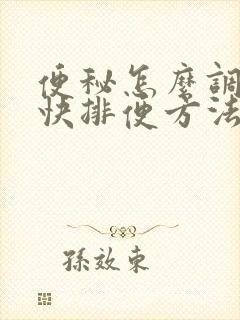 便秘怎麼調
快排便方法
孫效東